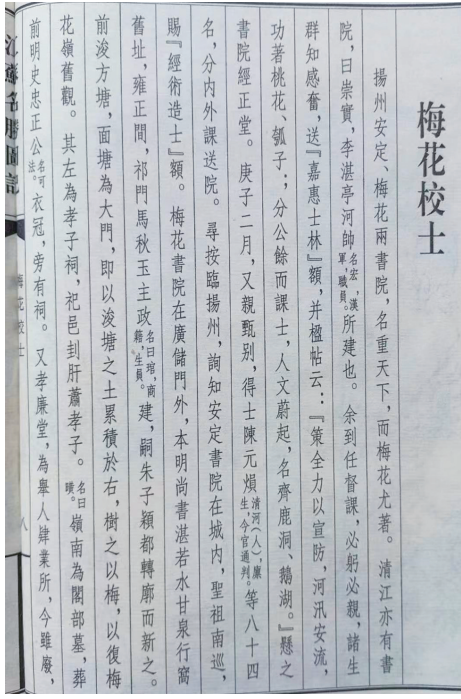 梅花校士
揚州安定、梅花兩書院，名重天下，而梅花尤著。清江亦有書
院，曰崇實，李湛亭河帥名宏，漢軍，職員。所建也。余到任督課，必躬必親，諸生
群知感奮，送『嘉惠士林』額，并楹帖云：『策全力以宣防，河汛安流，
功著桃花、瓠子；分公餘而課士，人文蔚起，名齊鹿洞、鵝湖。』懸之
書院經正堂。庚子二月，又親甄别，得士陳元熉清河（人），廪生，今官通判。等八十四
名，分内外課送院。尋按臨揚州，詢知安定書院在城内，聖祖南巡，
賜『經術造士』額。梅花書院在廣儲門外，本明尚書湛若水甘泉行窩
舊址，雍正間，祁門馬秋玉主政名曰琯，商籍，生員。建，嗣朱子穎都轉廓而新之。
前浚方塘，面塘為大門，即以浚塘之土累積於右，樹之以梅，以復梅
花嶺舊觀。其左為孝子祠，祀邑刲肝蕭孝子。名曰暎。嶺南為閣部墓，葬
前明史忠正公名可法。衣冠，旁有祠。又孝廉堂，為舉人肄業所，今雖廢，
江蘇名勝圖記
梅花校士
八